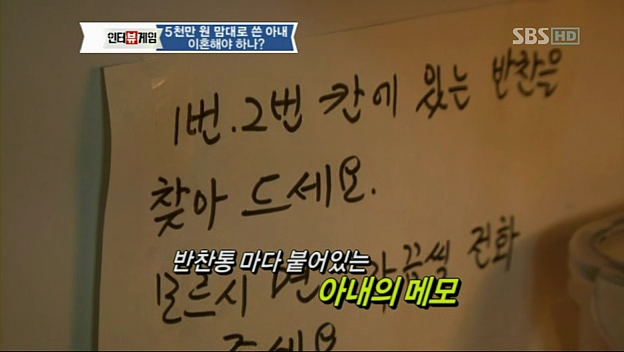 인터뷰게임
5천만 원 맘대로 쓴 아내
이혼해야 하나?
SBS HD
1번. 2번 칸에 있는 반찬을
찾아 드세요.
모르시면 전화
주세요
반찬통 마다 붙어있는
아내의 메모